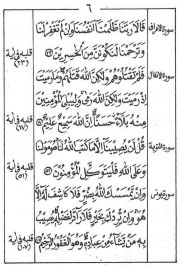 ٦
سورة الاعراف
قَالَا رَبَّنَا ظَلَمْنَا أَنْفُسَنَا وَإِنْ لَمْ تَغْفِرْ لَنَا
وَتَرْحَمْنَا لَنَكُونَنَّ مِنَ الْخٰسِرِينَ
قلبه في آية
(٢٣)
سورة الانفال
فَلَمْ تَقْتُلُوهُمْ وَلٰكِنَّ اللّٰهَ قَتَلَهُمْ وَمَا رَمَيْتَ
إِذْ رَمَيْتَ وَلٰكِنَّ اللّٰهَ رَمٰى وَلِيُبْلِيَ الْمُؤْمِنِينَ
مِنْهُ بَلَاءً حَسَنًا إِنَّ اللّٰهَ سَمِيعٌ عَلِيمٌ
قلبه في آية
(١٧)
سورة التوبة
قُلْ لَنْ يُصِيبَنَا إِلَّا مَا كَتَبَ اللّٰهُ لَنَا هُوَ مَوْلٰنَا
وَعَلَى اللّٰهِ فَلْيَتَوَكَّلِ الْمُؤْمِنُونَ
قلبه في آية
(٥١)
سورة يونس
وَإِنْ يَمْسَسْكَ اللّٰهُ بِضُرٍّ فَلَا كَاشِفَ لَهُ إِلَّا
هُوَ وَإِنْ يُرِدْكَ بِخَيْرٍ فَلَا رَادَّ لِفَضْلِهِ يُصِيبُ
بِهِ مَنْ يَشَاءُ مِنْ عِبَادِهِ وَهُوَ الْغَفُورُ الرَّحِيمُ
قلبه في آية
(١٠٧)